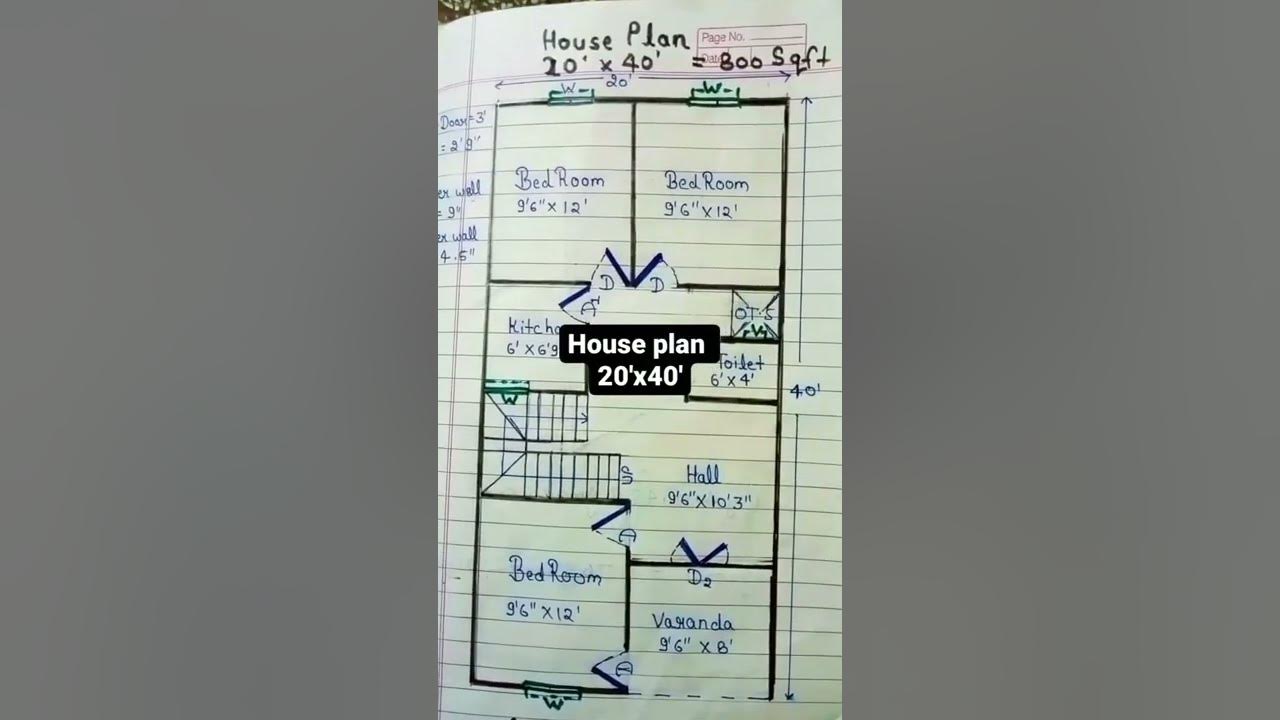 House Plan
Page No.
20' x 40' = 800 Sqft
20'
W
W
Door=3'
= 2'9"
er wall
= 9"
er wall
4.5"
BedRoom
9'6" x 12'
BedRoom
9'6" x 12'
D
D
O.T.S
W
6' x 6'9
House plan
20'x40'
Toilet
6' x 4'
40'
W
Hall
9'6" x 10'3"
D
BedRoom
9'6" x 12'
D2
Varanda
9'6" x 8'
D
W